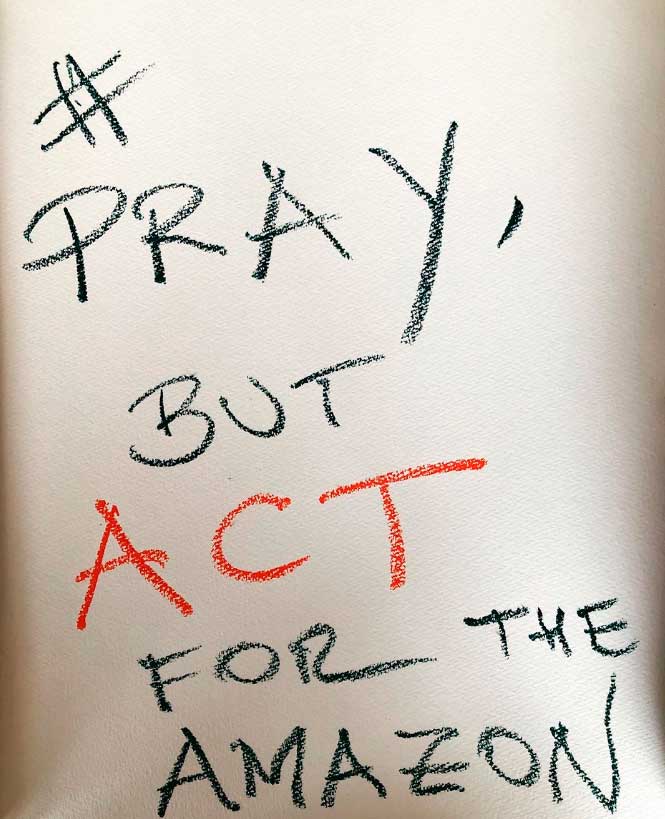 #
PRAY,
BUT
ACT
FOR THE
AMAZON